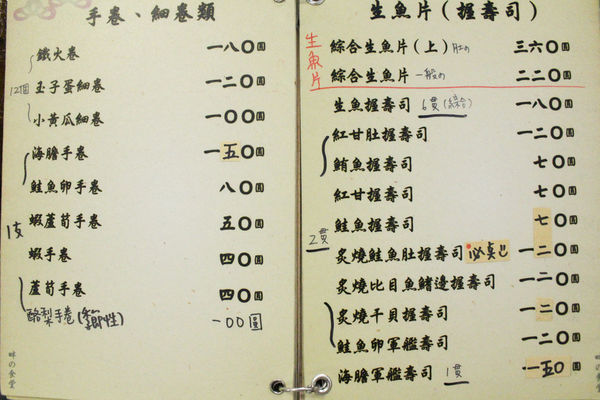 手巻、細巻類
鐵火巻 一八〇圓
12個
玉子蛋細巻 一二〇圓
小黃瓜細巻 一〇〇圓
海膽手巻 一五〇圓
鮭魚卵手巻 八〇圓
1支
蝦蘆荀手巻 五〇圓
蝦手巻 四〇圓
蘆荀手巻 四〇圓
酪梨手巻(季節性) 一〇〇圓
畔の食堂
生魚片(握壽司)
生魚片
綜合生魚片(上) 三六〇圓
綜合生魚片 一般の 二二〇圓
生魚握壽司 6貫(綜合) 一八〇圓
紅甘肚握壽司 一二〇圓
鮪魚握壽司 七〇圓
紅甘握壽司 七〇圓
鮭魚握壽司 七〇圓
2貫
炙燒鮭魚肚握壽司 必点 一二〇圓
炙燒比目魚鰭邊握壽司 一二〇圓
炙燒干貝握壽司 一二〇圓
鮭魚卵軍艦壽司 一二〇圓
海膽軍艦壽司 1貫 一五〇圓